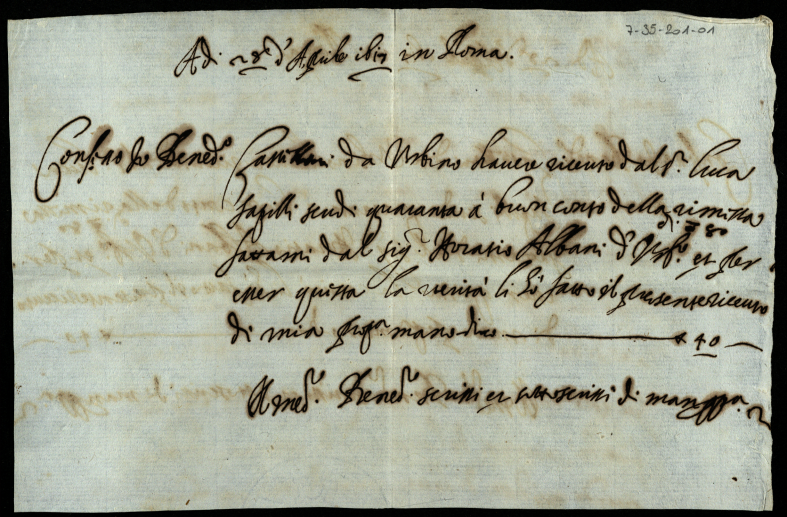 7-35-201-01
Adi 28 d'Aprile 1617 in Roma.
Confesso Io Bened.o Castellani da Urbino havere riceuto dal S.r Luca
scudi quaranta à buon conto della rimissa
di 80
fattami dal sig.r Horatio Albani d' et per
esser questa la verità li hò fatto il presente riceuto
di mia prop.a mano dico 40
Il med.o Bened.o scrissi et sottoscrissi di man ppa.